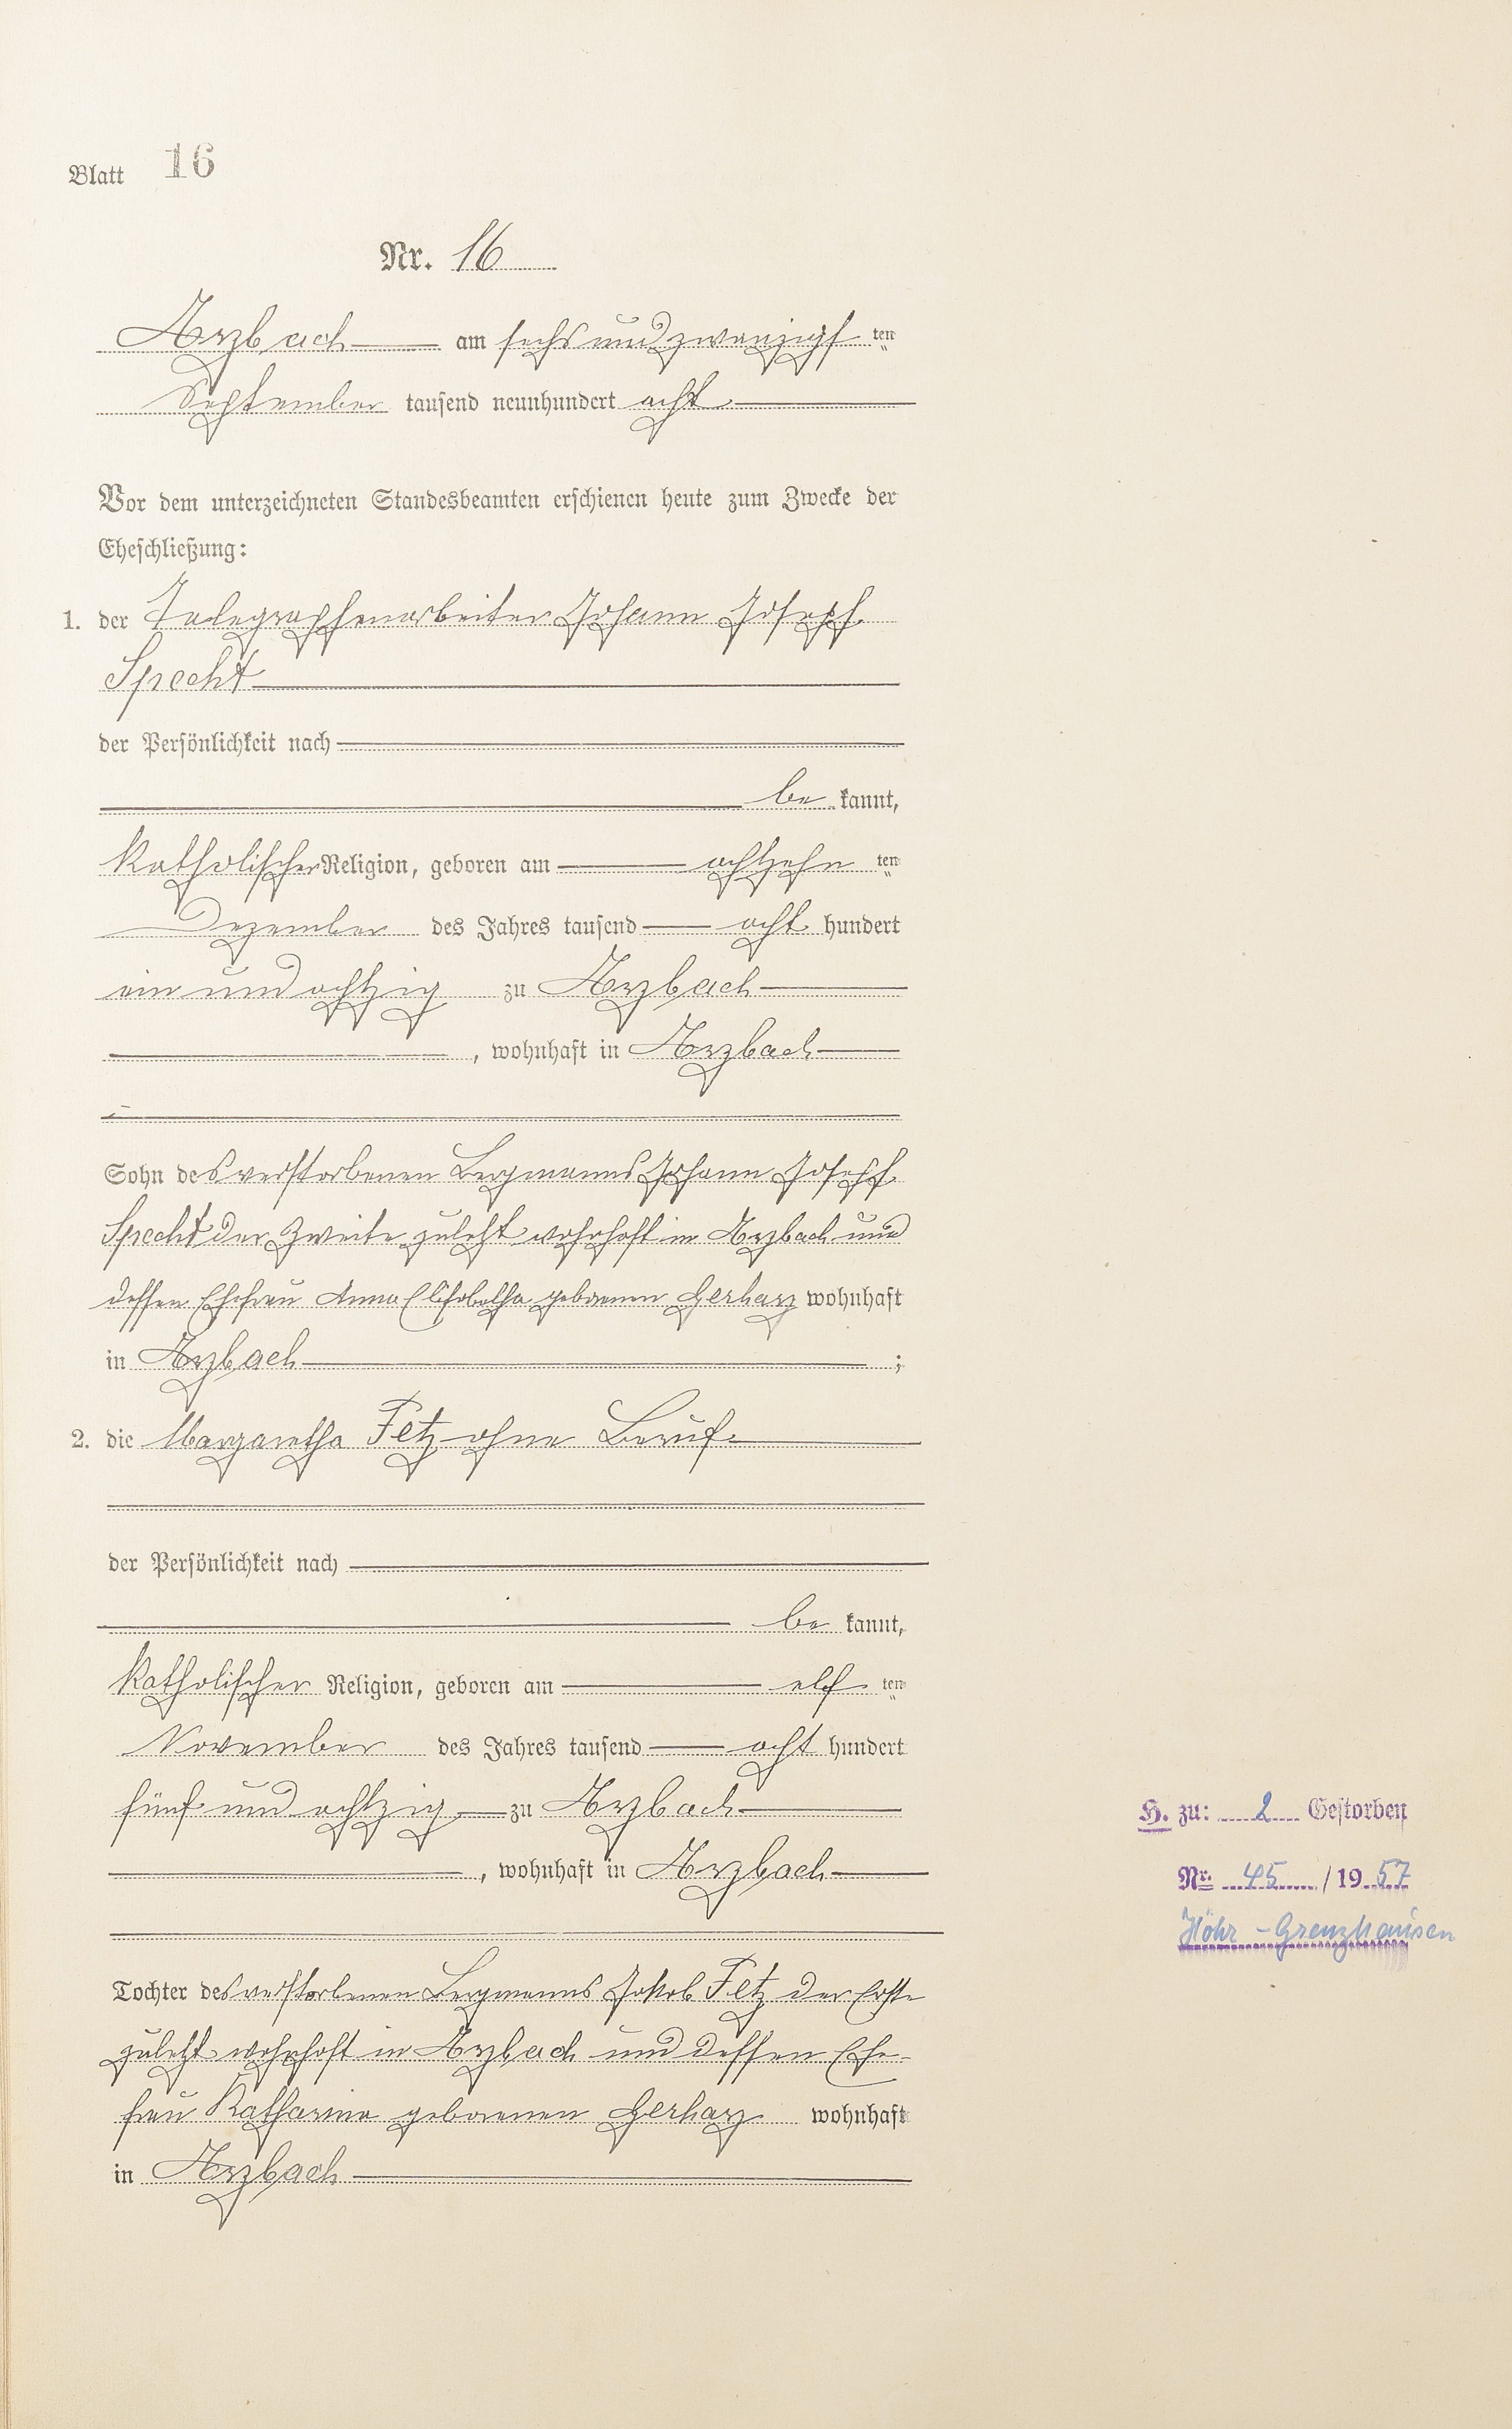 Blatt 16
Nr. 16
Arzbach am sechs und zwanzigsten
September tausend neunhundert acht
Vor dem unterzeichneten Standesbeamten erschienen heute zum Zwecke der
Eheschließung:
1. der Telegraphenarbeiter Johann Joseph
Specht
der Persönlichkeit nach
be kannt,
Katholischer Religion, geboren am achtzehn ten
Dezember des Jahres tausend acht hundert
ein und achtzig zu Arzbach
, wohnhaft in Arzbach
Sohn des verstorbenen Bergmanns Johann Joseph
Specht der Zweite zuletzt wohnhaft in Arzbach und
dessen Ehefrau Anna Elisabetha geborenen Gerharz wohnhaft
in Arzbach ;
2. die Margaretha Fetz ohne Beruf
der Persönlichkeit nach
be kannt,
Katholischer Religion, geboren am elf ten
November des Jahres tausend acht hundert
fünf und achtzig zu Arzbach
, wohnhaft in Arzbach
Tochter des verstorbenen Bergmanns Jakob Fetz der Erste
zuletzt wohnhaft in Arzbach und dessen Ehe-
frau Katharina geborenen Gerharz wohnhaft
in Arzbach
H. zu: 2 Gestorben
Nr. 45 / 1957
Höhr-Grenzhausen